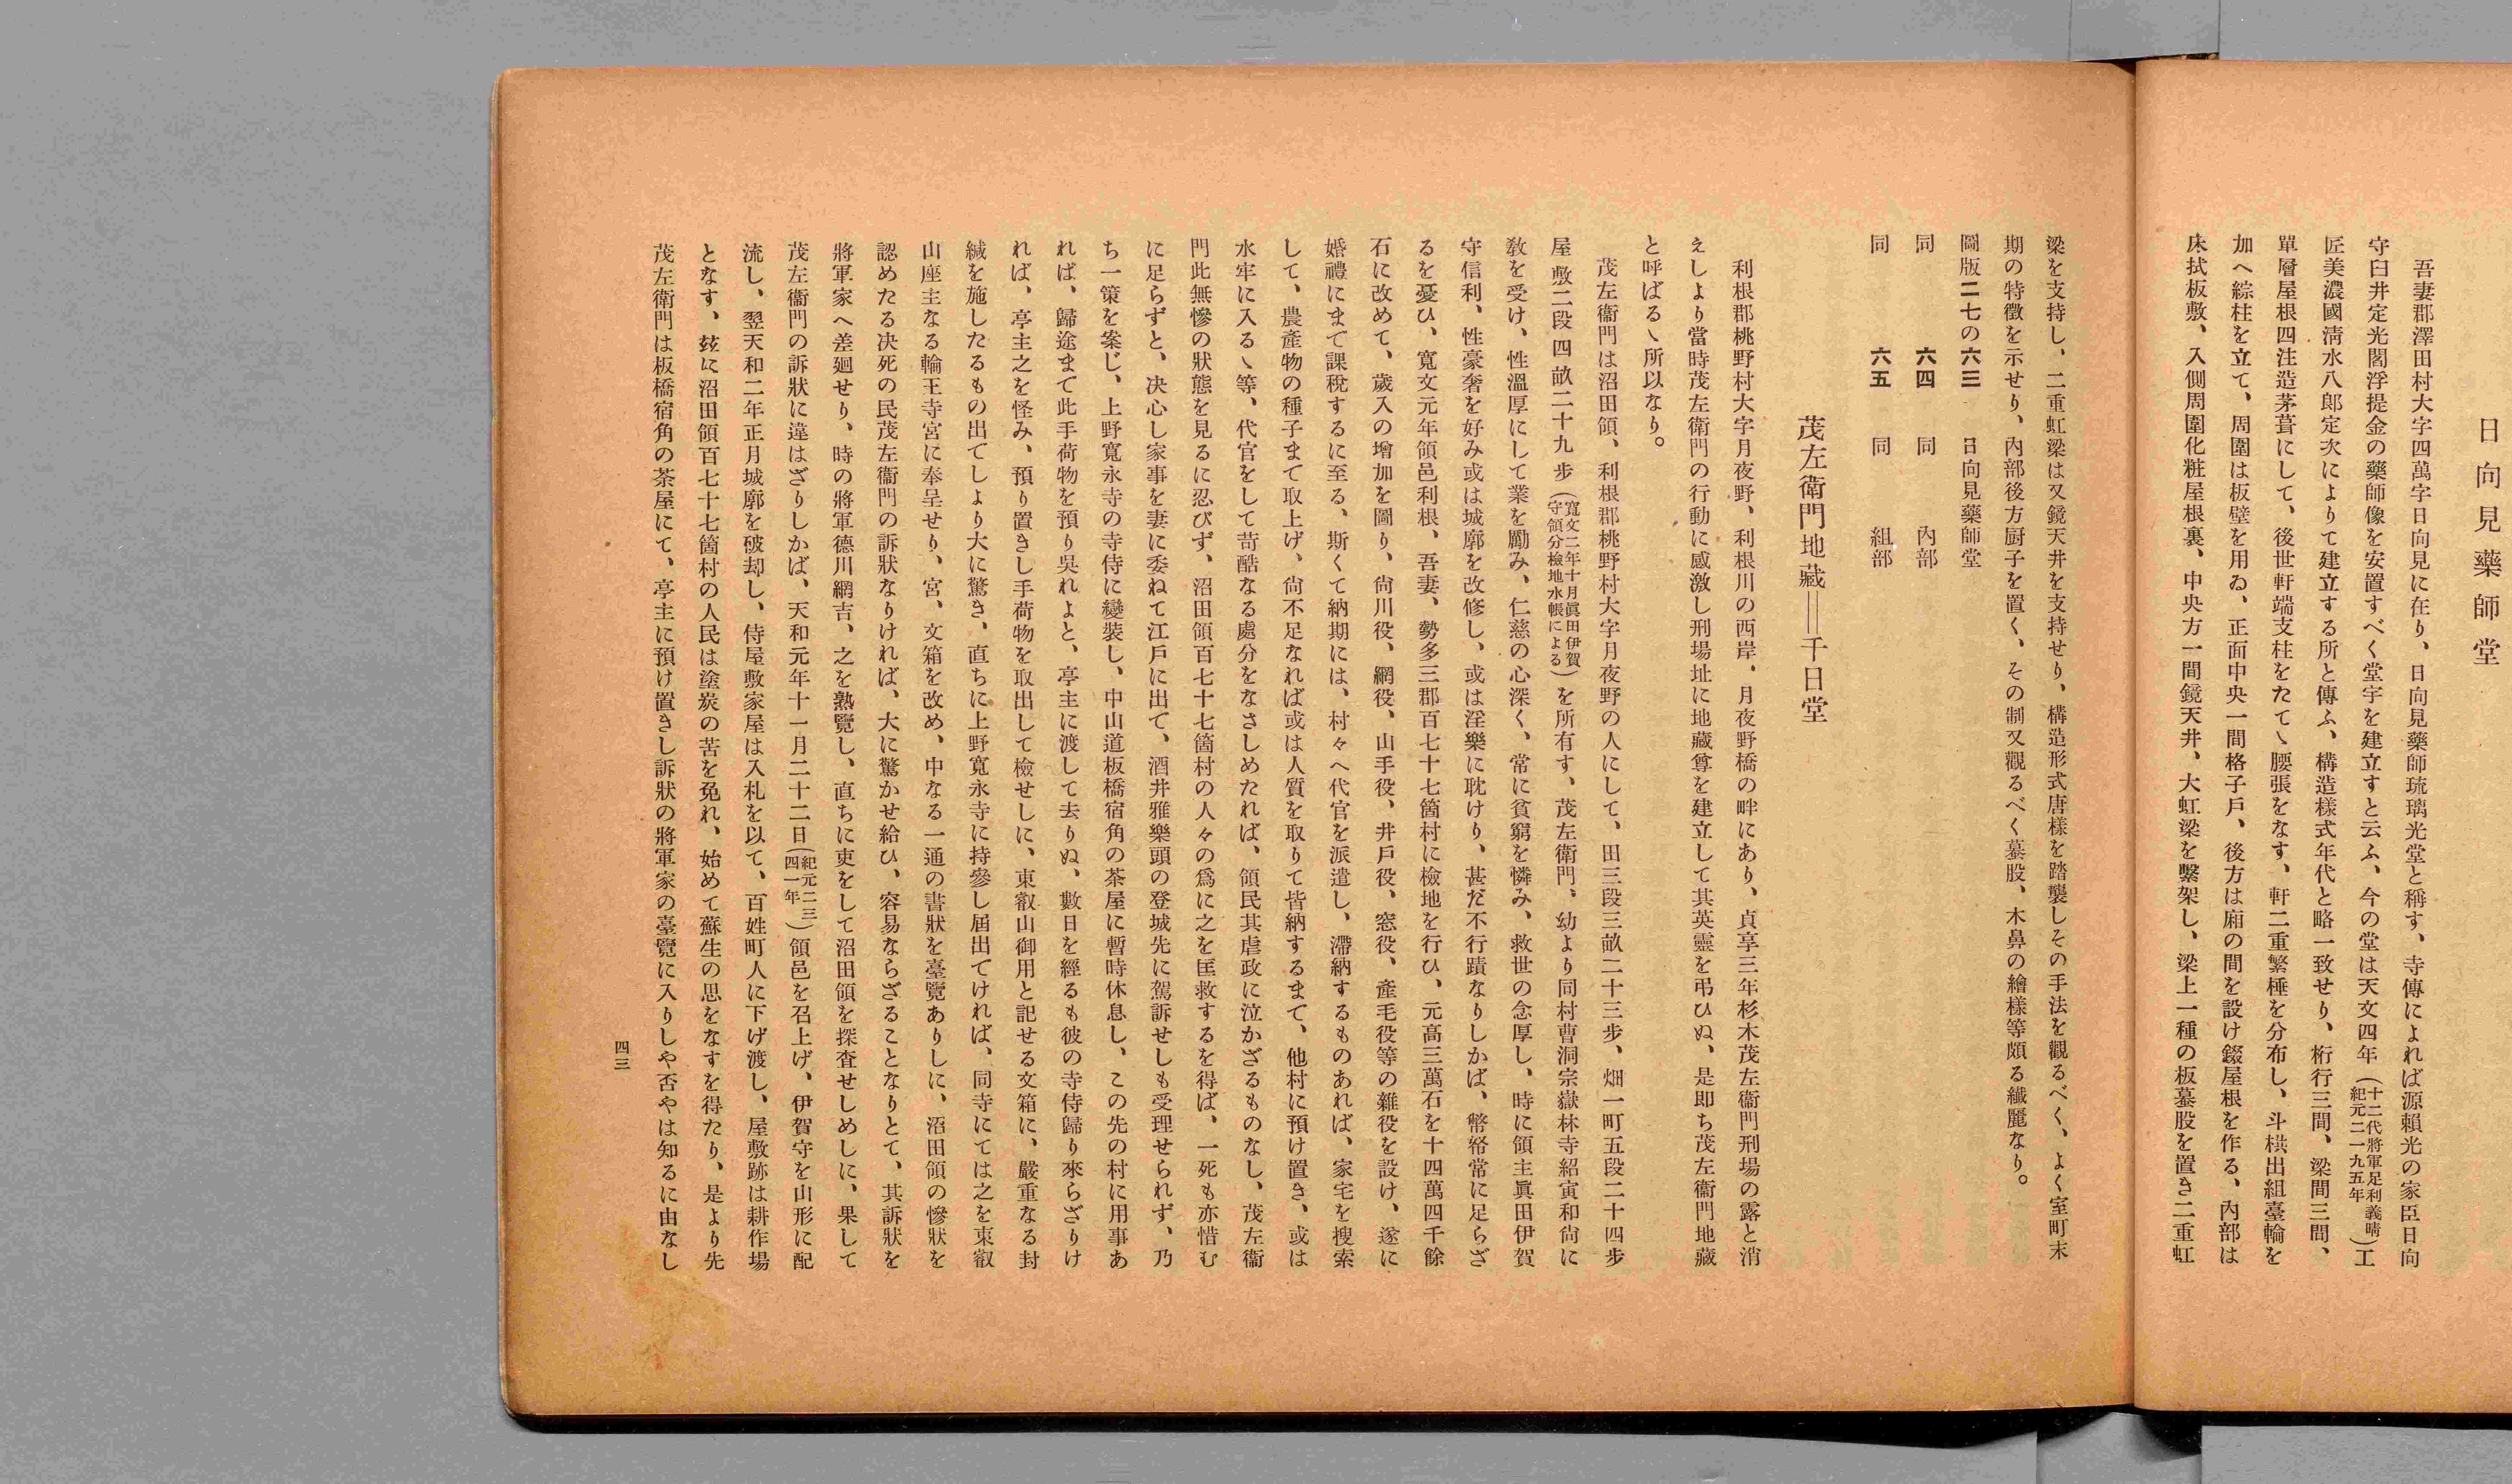 日向見藥師堂
吾妻郡澤田村大字四萬字日向見に在り、日向見藥師琉璃光堂と稱す、寺傳によれば源賴光の家臣日向
守臼井定光閻浮提金の藥師像を安置すべく堂宇を建立すと云ふ、今の堂は天文四年(十二代將軍足利義晴紀元二一九五年)工
匠美濃國淸水八郎定次によりて建立する所と傳ふ、構造樣式年代と略一致せり、桁行三間、梁間三間、
單層屋根四注造茅葺にして、後世軒端支柱をたてヽ腰張をなす、軒二重繁棰を分布し、斗栱出組臺輪を
加へ綜柱を立て、周圍は板壁を用ゐ、正面中央一間格子戶、後方は廂の間を設け錣屋根を作る、內部は
床拭板敷、入側周圍化粧屋根裏、中央方一間鏡天井、大虹梁を繫架し、梁上一種の板蟇股を置き二重虹
梁を支持し、二重虹梁は又鏡天井を支持せり、構造形式唐樣を踏襲しその手法を觀るべく、よく室町末
期の特徵を示せり、內部後方厨子を置く、その制又觀るべく蟇股、木鼻の繪樣等頗る纖麗なり。
圖版二七の六三 日向見藥師堂
同 六四 同 內部
同 六五 同 組部
茂左衛門地藏══千日堂
利根郡桃野村大字月夜野、利根川の西岸、月夜野橋の畔にあり、貞享三年杉木茂左衞門刑場の露と消
えしより當時茂左衞門の行動に感激し刑場址に地藏尊を建立して其英靈を弔ひぬ、是即ち茂左衞門地藏
と呼ばるヽ所以なり。
茂左衞門は沼田領、利根郡桃野村大字月夜野の人にして、田三段三畝二十三步、畑一町五段二十四步
屋敷二段四畝二十九步(寬文二年十月眞田伊賀守領分檢地水帳による)を所有す、茂左衞門、幼より同村曹洞宗嶽林寺紹寅和尙に
敎を受け、性溫厚にして業を勵み、仁慈の心深く、常に貧窮を憐み、救世の念厚し、時に領主眞田伊賀
守信利、性豪奢を好み或は城廓を改修し、或は淫樂に耽けり、甚だ不行蹟なりしかば、幣帑常に足らざ
るを憂ひ、寬文元年領邑利根、吾妻、勢多三郡百七十七箇村に檢地を行ひ、元高三萬石を十四萬四千餘
石に改めて、歲入の增加を圖り、尙川役、網役、山手役、井戶役、窓役、產毛役等の雜役を設け、遂に
婚禮にまで課稅するに至る、斯くて納期には、村々へ代官を派遣し、滯納するものあれば、家宅を搜索
して、農產物の種子まて取上げ、尙不足なれば或は人質を取りて皆納するまて、他村に預け置き、或は
水牢に入るヽ等、代官をして苛酷なる處分をなさしめたれば、領民其虐政に泣かざるものなし、茂左衞
門此無慘の狀態を見るに忍びず、沼田領百七十七箇村の人々の爲に之を匡救するを得ば、一死も亦惜む
に足らずと、決心し家事を妻に委ねて江戶に出て、酒井雅樂頭の登城先に駕訴せしも受理せられず、乃
ち一策を案じ、上野寬永寺の寺侍に變裝し、中山道板橋宿角の茶屋に暫時休息し、この先の村に用事あ
れば、歸途まて此手荷物を預り吳れよと、亭主に渡して去りぬ、數日を經るも彼の寺侍歸り來らざりけ
れば、亭主之を怪み、預り置きし手荷物を取出して檢せしに、東叡山御用と記せる文箱に、嚴重なる封
緘を施したるもの出てしより大に驚き、直ちに上野寬永寺に持參し屆出てければ、同寺にては之を東叡
山座主なる輪王寺宮に奉呈せり、宮、文箱を改め、中なる一通の書狀を臺覽ありしに、沼田領の慘狀を
認めたる決死の民茂左衞門の訴狀なりければ、大に驚かせ給ひ、容易ならざることなりとて、其訴狀を
將軍家へ差廻せり、時の將軍德川綱吉、之を熟覽し、直ちに吏をして沼田領を探査せしめしに、果して
茂左衞門の訴狀に違はざりしかば、天和元年十一月二十二日(紀元二三四一年)領邑を召上げ、伊賀守を山形に配
流し、翌天和二年正月城廓を破却し、侍屋敷家屋は入札を以て、百姓町人に下げ渡し、屋敷跡は耕作場
となす、玆に沼田領百七十七箇村の人民は塗炭の苦を免れ、始めて蘇生の思をなすを得たり、是より先
茂左衞門は板橋宿角の茶屋にて、亭主に預け置きし訴狀の將軍家の臺覽に入りしや否やは知るに由なし
四三